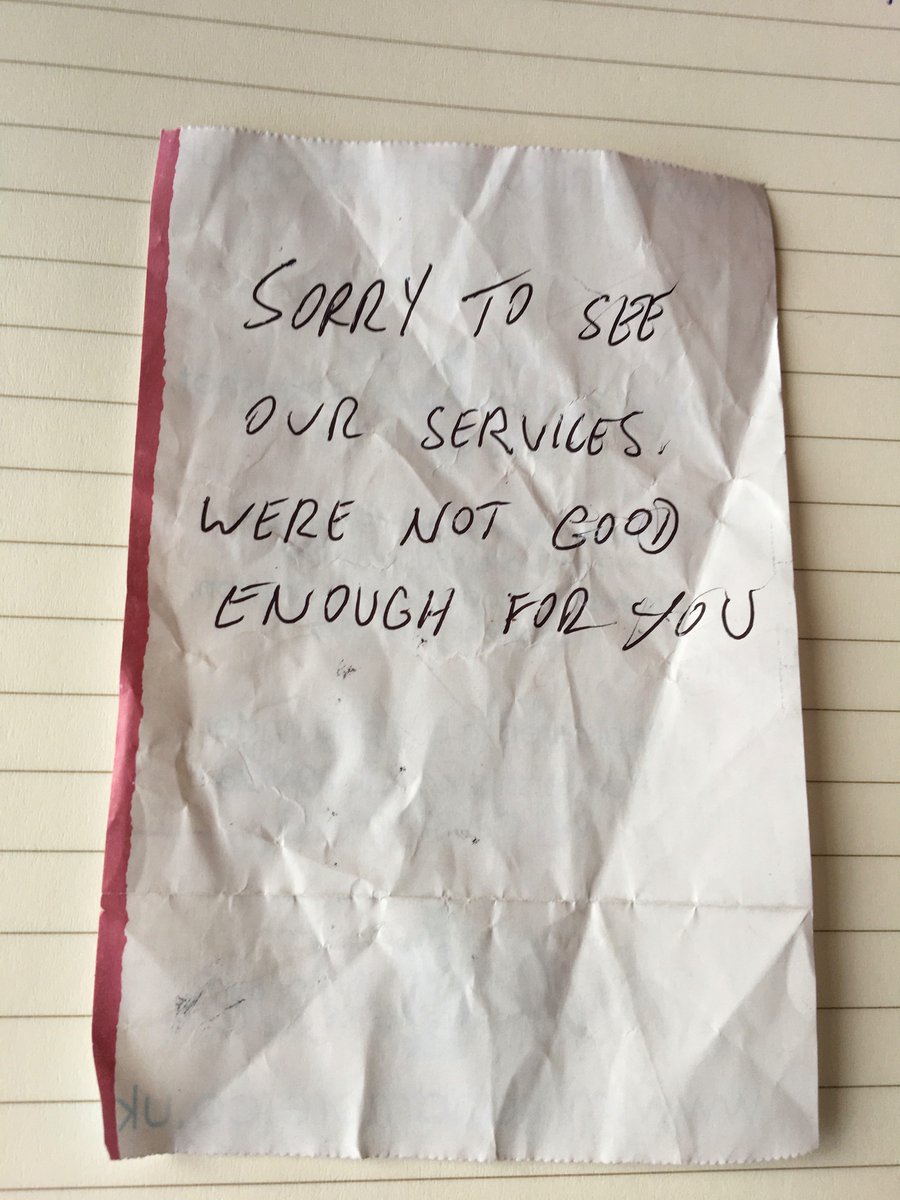 SORRY TO SEE
OUR SERVICES.
WERE NOT GOOD
ENOUGH FOR YOU